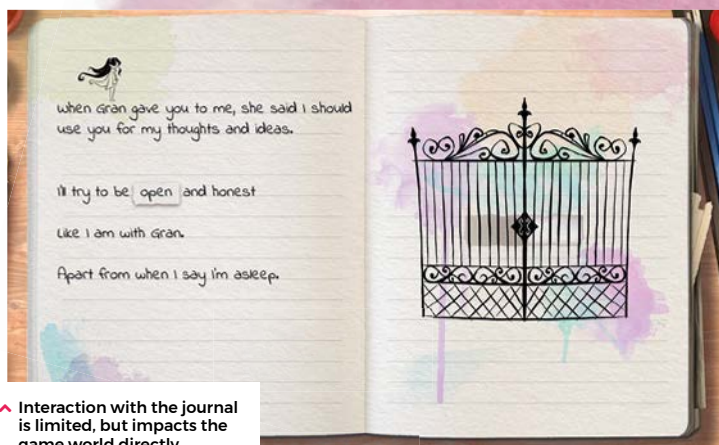 when Gran gave you to me, she said I should
use you for my thoughts and ideas.
I'll try to be open and honest
Like I am with Gran.
Apart from when I say I'm asleep.
Interaction with the journal
is limited, but impacts the
game world directly